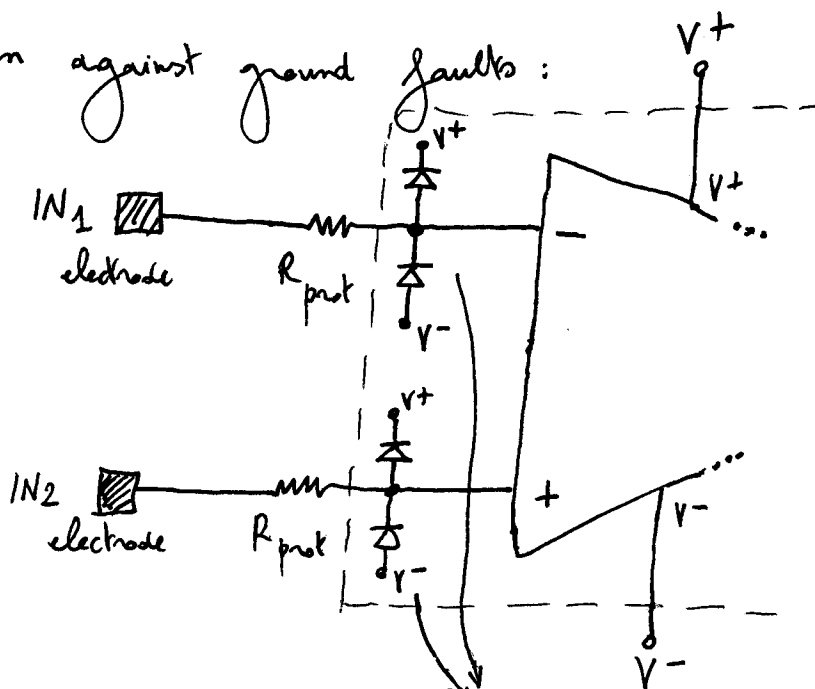 n against ground faults :
V+
V+
V+
IN1
electrode
Rprot
−
...
V-
V+
IN2
electrode
Rprot
+
...
V-
V-
V-